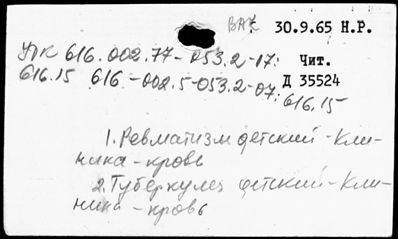 ВАК 30.9.65 Н.Р.
УДК 616.002.77-053.2-17: Чит.
616.15 616-002.5-053.2-07: Д 35524
616.15
1. Ревматизм детский - Кли-
ника - кровь
2. Туберкулез детский - Кли-
ника - кровь